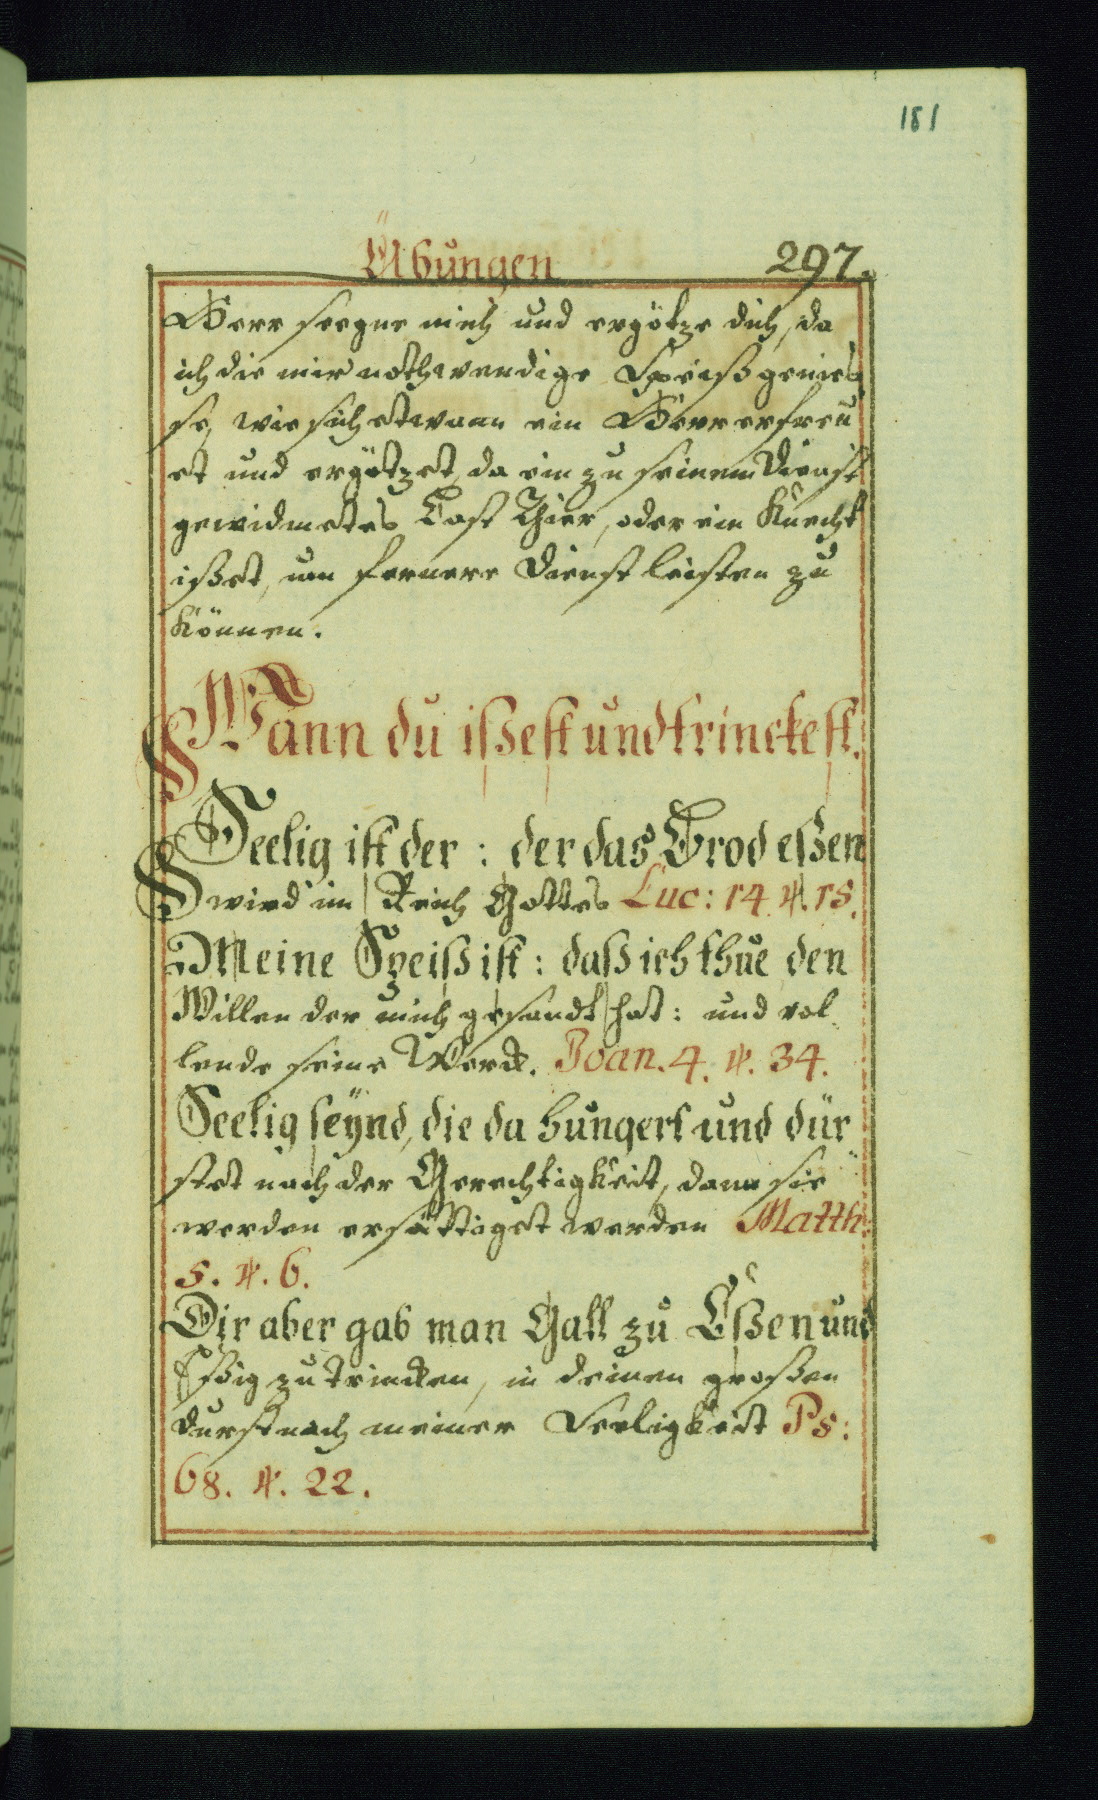 181
Übungen 297.
Herr seegne mich und ergötze dich, da
ich die mir nothwendige Speiß genies
se, wie sich etwann ein Herr erfreu
et und ergötzet, da ein zu seinem Dienst
gewidmetes Last Thier, oder ein Knecht
ißet, um fernere Dienst leisten zu
können.
Wann du ißest und trinckest.
Seelig ist der : der das Brod eßen
wird im Reich Gottes Luc: 14. ℣. 15.
Meine Speiß ist : daß ich thue den
Willen der mich gesandt hat : und vol
lende seine Werck. Joan. 4. ℣. 34.
Seelig seÿnd, die da hungert und dür
stet nach der Gerechtigkeit, dann sie
werden ersättiget werden Matth:
5. ℣. 6.
Dir aber gab man Gall zu Eßen und
Eßig zu Trincken, in deinen großen
Durst nach meiner Seeligkeit Ps:
68. ℣. 22.